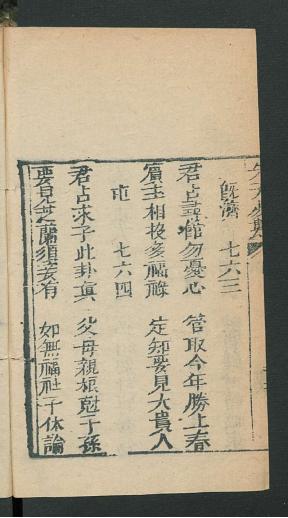 既濟　七六三
君占書館勿憂心　管取今年勝上春
賓主相投多福祿　定知要見大貴人
屯　七六四
君占求子此卦真　父母親柜尅子孫
要見芝蘭須妾有　如無福祉子休論